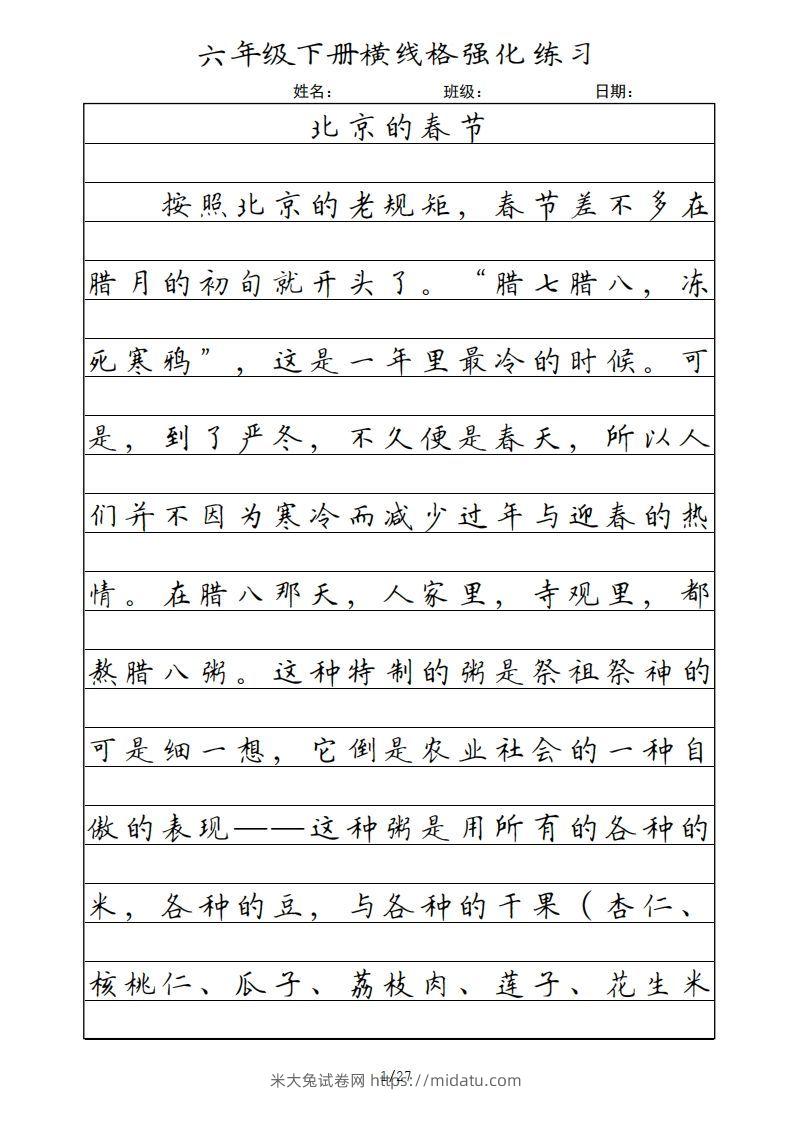 六年级下册横线格强化练习
姓名： 班级： 日期：
北京的春节
按照北京的老规矩，春节差不多在
腊月的初旬就开头了。“腊七腊八，冻
死寒鸦”，这是一年里最冷的时候。可
是，到了严冬，不久便是春天，所以人
们并不因为寒冷而减少过年与迎春的热
情。在腊八那天，人家里，寺观里，都
熬腊八粥。这种特制的粥是祭祖祭神的
可是细一想，它倒是农业社会的一种自
傲的表现——这种粥是用所有的各种的
米，各种的豆，与各种的干果（杏仁、
核桃仁、瓜子、荔枝肉、莲子、花生米
1/27
米大兔试卷网 https://midatu.com